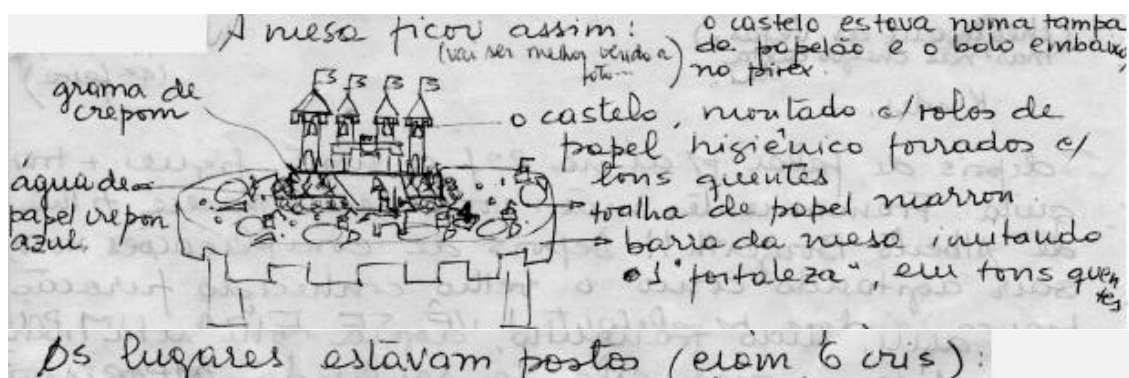 A mesa ficou assim:
(vai ser melhor vendo a
foto...)
o castelo estava numa tampa
de papelão e o bolo embaixo,
no pirex.
grama de
crepom
o castelo, montado c/rolos de
papel higiênico forrados c/
tons quentes
água de
papel crepon
azul
toalha de papel marron
barra da mesa imitando
"fortaleza", em tons quentes
Os lugares estavam postos (eram 6 cris):